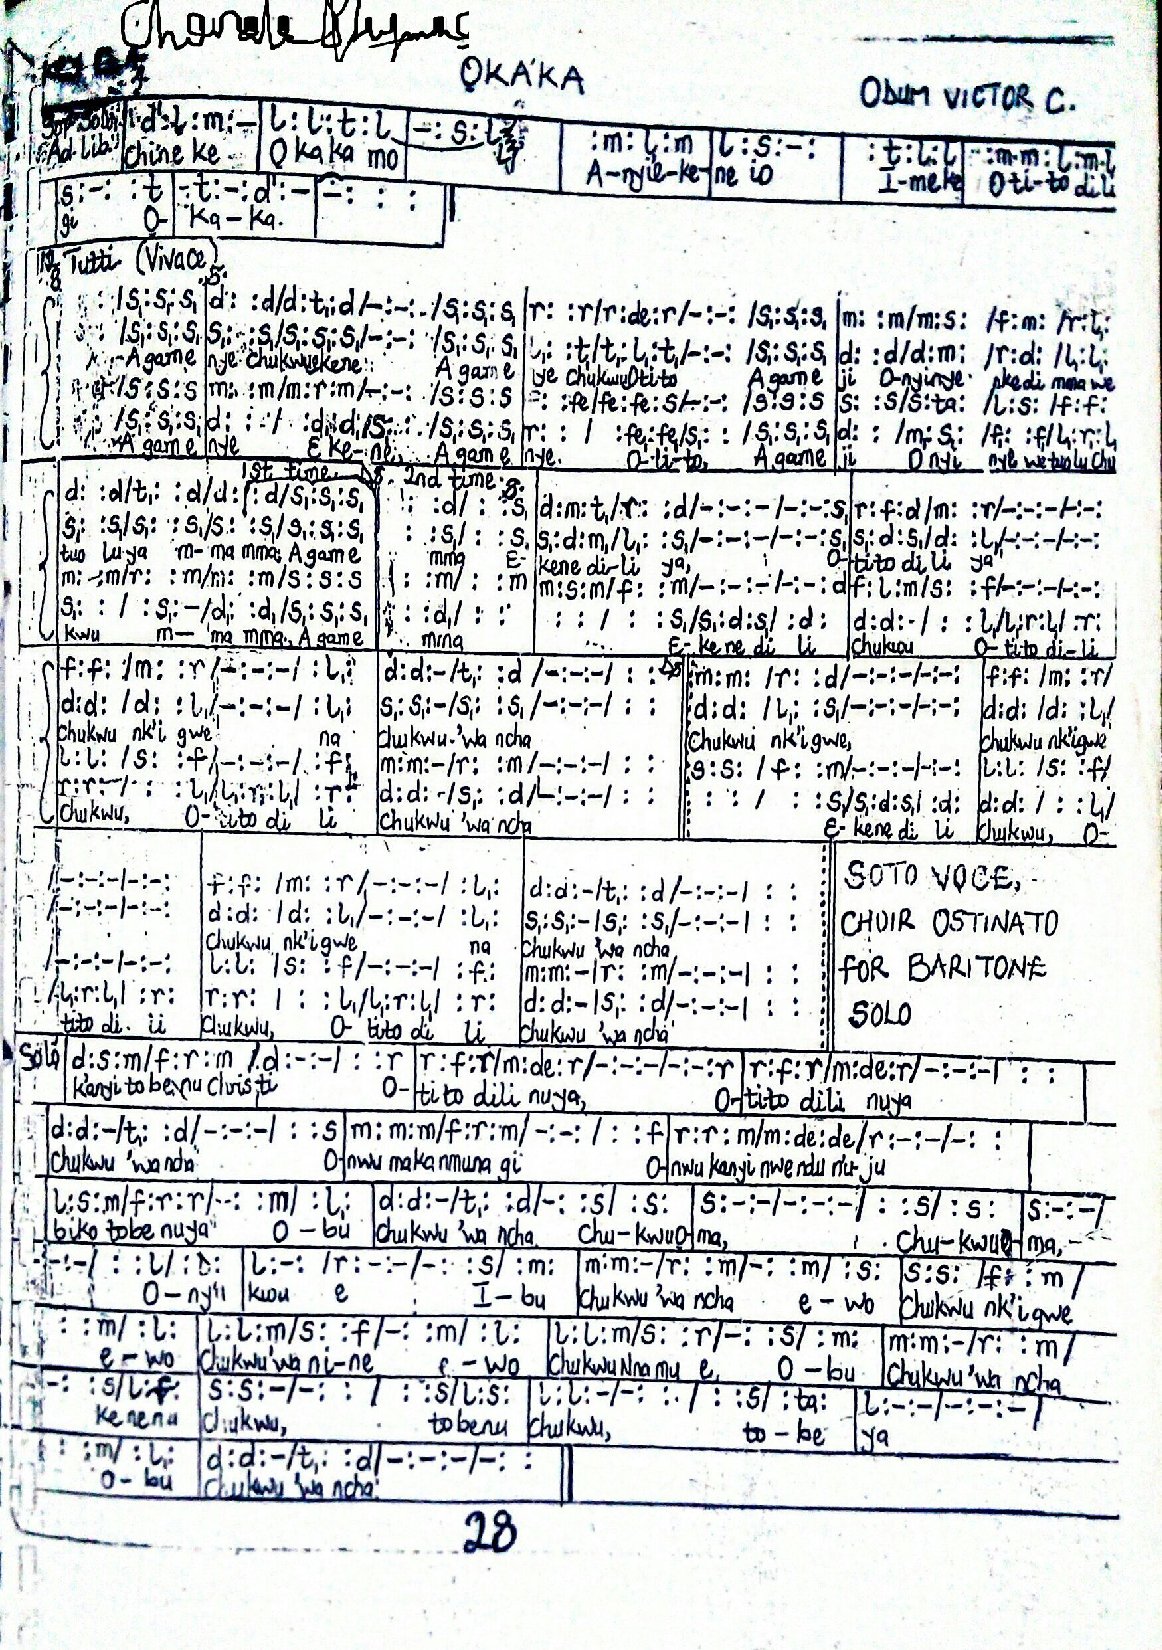 ỌKÁKA
ODUM VICTOR C.
Sop Solo d':l:m:- l:l:t:l -:s:l :m:l:m l:s:-: :t:l:l :m.m:l:m.l
Ad Lib. Chineke Okaka mo A-nyie-ke-ne io I-meke Oti-to dili
s:-: :t -t:-:d':- -: : :
gi O- Ka-ka.
Tutti (Vivace) S.
: /s₁:s₁:s₁ d: :d/d:t₁:d/-:-: /s₁:s₁:s₁ r: :r/r:de:r/-:-: /s₁:s₁:s₁ m: :m/m:s: /f:m: /r:l₁:
: /s₁:s₁:s₁ s₁: :s₁/s₁:s₁:s₁/-:-: /s₁:s₁:s₁ l₁: :t₁/t₁:l₁:t₁/-:-: /s₁:s₁:s₁ d: :d/d:m: /r:d: /l₁:l₁:
A game nye chukwuekene A game iye chukwuOtito A game ji O-nyinye nkedi mma we
/s:s:s m: :m/m:r:m/-:-: /s:s:s :fe/fe:fe:s/-:-: /s:s:s s: :s/s:ta: /l:s: /f:f:
/s₁:s₁:s₁ d: : / :d:d/s: : /s₁:s₁:s₁ r: : / :fe:fe/s: : /s₁:s₁:s₁ d: : /m:s: /f: :f/l₁:r:l₁
A game nye E ke-ne, A game nye. O-ti-to, A game ji O nyi nye wetuolu Chu
1st time DS 2nd time S.
d: :d/t₁: :d/d: :d/s₁:s₁:s₁ : :d/ : :s₁ d:m:t₁/r: :d/-:-:-/-:-:s₁ r:f:d/m: :r/-:-:-/-:-:
s₁: :s₁/s₁: :s₁/s: :s₁/s₁:s₁:s₁ : :s₁/ : :s₁ s₁:d:m₁/l₁: :s₁/-:-:-/-:-:s₁ s₁:d:s₁/d: :l₁/-:-:-/-:-:
tuo lu ya m-ma mma; A game mma E- kene di-li ya, O- tito di li ya
m: -:m/r: :m/m: :m/s:s:s : :m/ : :m m:s:m/f: :m/-:-:-/-:-:d f:l:m/s: :f/-:-:-/-:-:
s₁: : / :s₁:-/d₁: :d₁/s₁:s₁:s₁ : :d₁/ : : : : / : :s₁/s₁:d:s₁/ :d: d:d:-/ : :l₁/l₁:r:l₁/ :r:
kwu m- ma mma, A game mma E- ke ne di li Chukwu O- tito di-li
f:f: /m: :r/-:-:-/ :l₁: d:d:-/t₁: :d/-:-:-/ : : DS m:m: /r: :d/-:-:-/-:-: f:f: /m: :r/
d:d: /d: :l₁/-:-:-/ :l₁: s₁:s₁:-/s₁: :s₁/-:-:-/ : : d:d: /l₁: :s₁/-:-:-/-:-: d:d: /d: :l₁/
chukwu nk'i gwe na chukwu-'wa ncha chukwu nk'igwe, chukwu nk'igwe
l:l: /s: :f/-:-:-/ :f: m:m:-/r: :m/-:-:-/ : : s:s: /f: :m/-:-:-/-:-: l:l: /s: :f/
r:r:-/ : :l₁/l₁:r:l₁/ :r: d:d:-/s₁: :d/-:-:-/ : : : : / : :s₁/s₁:d:s₁/ :d: d:d: / : :l₁/
Chukwu, O- tito di li chukwu 'wa ncha E- kene di li chukwu, O-
/-:-:-/-:-: f:f: /m: :r/-:-:-/ :l₁: d:d:-/t₁: :d/-:-:-/ : :
/-:-:-/-:-: d:d: /d: :l₁/-:-:-/ :l₁: s₁:s₁:-/s₁: :s₁/-:-:-/ : :
Chukwu nk'i gwe na Chukwu 'wa ncha
/-:-:-/-:-: l:l: /s: :f/-:-:-/ :f: m:m:-/r: :m/-:-:-/ : :
/l₁:r:l₁/ :r: r:r: / : :l₁/l₁:r:l₁/ :r: d:d:-/s₁: :d/-:-:-/ : :
tito di- li Chukwu, O- tito di li chukwu 'wa ncha
SOTO VOCE,
CHOIR OSTINATO
FOR BARITONE
SOLO
Solo d:s:m/f:r:m /d:-:-/ : :r r:f:r/m:de:r/-:-:-/-:-:r r:f:r/m:de:r/-:-:-/ : :
kanyi to benu Christi O- tito dili nuya, O-tito dili nuya
d:d:-/t₁: :d/-:-:-/ : :s m:m:m/f:r:m/-:-: / : :f r:r:m/m:de:de/r:-:-/-: :
Chukwu 'wa ncha O-nwu makanmuna gi O-nwu kanyi nwe ndu n'u-ju
l:s:m/f:r:r/-: :m/ :l₁: d:d:-/t₁: :d/-: :s/ :s: s:-:-/-:-:-/ : :s/ :s: s:-:-/
biko tobe nuya O-bu chukwu 'wa ncha Chu-kwuO-ma, Chu-kwuO-ma,-
-:-/ : :l/ :l: l:-: /r:-:-/-: :s/ :m: m:m:-/r: :m/-: :m/ :s: s:s: /f: :m/
O-nyi kwu e I-bu Chukwu 'wa ncha e-wo Chukwu nk'i gwe
: :m/ :l: l:l:m/s: :f/-: :m/ :l: l:l:m/s: :r/-: :s/ :m: m:m:-/r: :m/
e-wo Chukwu 'wa ni-ne e-wo Chukwu Nna mu e, O-bu Chukwu 'wa ncha
-: :s/l:f: s:s:-/-: : / : :s/l:s: l:l:-/-: : / : :s/ :ta: l:-:-/-:-:-/
kenenu chukwu, tobenu chukwu, to-be ya
: :m/ :l₁: d:d:-/t₁: :d/-:-:-/-: :
O-bu chukwu 'wa ncha
28